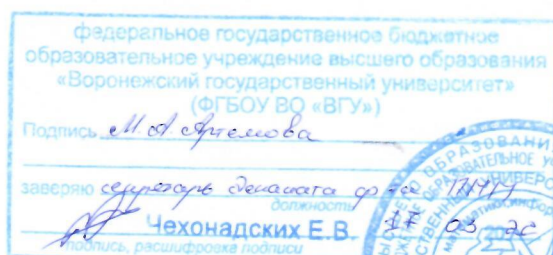 федеральное государственное бюджетное
образовательное учреждение высшего образования
«Воронежский государственный университет»
(ФГБОУ ВО «ВГУ»)
Подпись М.А. Артемова
заверяю секретарь деканата ф-та ПММ
должность
Чехонадских Е.В. 17 03
подпись, расшифровка подписи